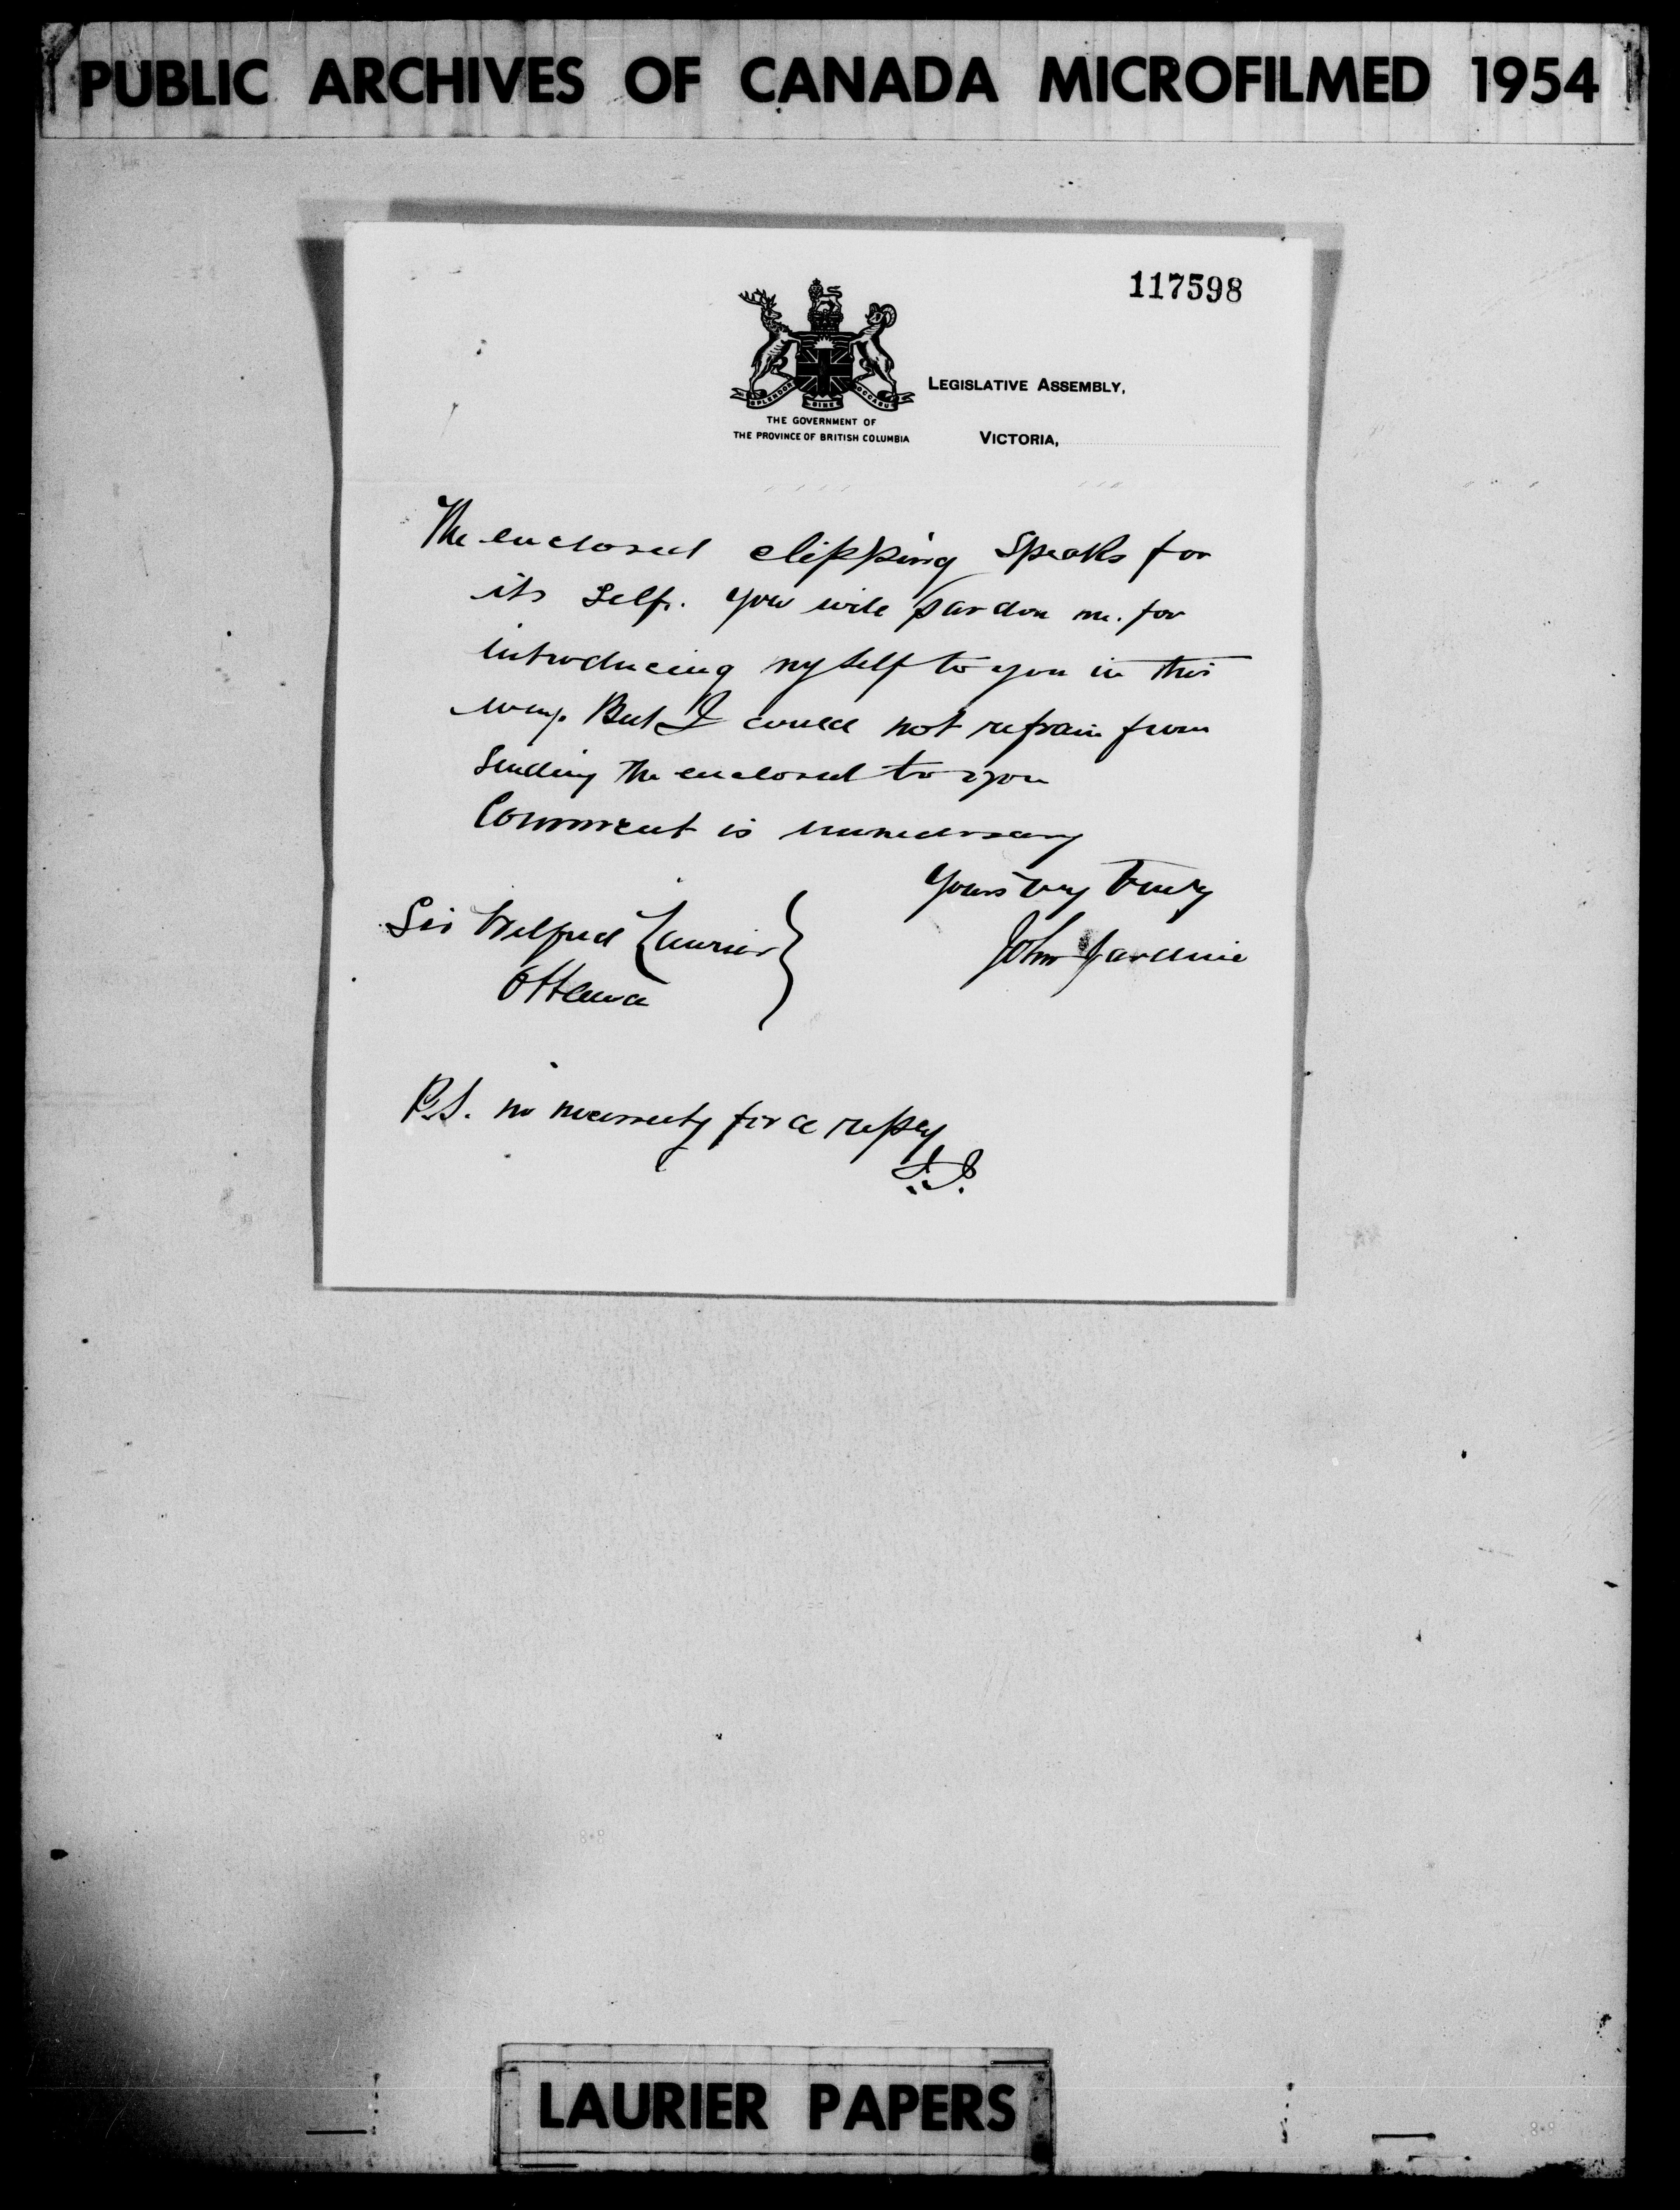 PUBLIC ARCHIVES OF CANADA MICROFILMED 1954
117598
SPLENDOR SINE OCCASU
LEGISLATIVE ASSEMBLY,
THE GOVERNMENT OF
THE PROVINCE OF BRITISH COLUMBIA
VICTORIA,
The enclosed clipping speaks for
its self. You will pardon me. for
introducing my self to you in this
way. But I could not refrain from
sending the enclosed to you
Comment is unnecessary
Yours very truly
John Jardine
Sir Wilfred Laurier
Ottawa
P.S. no necessity for a reply
J.J.
LAURIER PAPERS